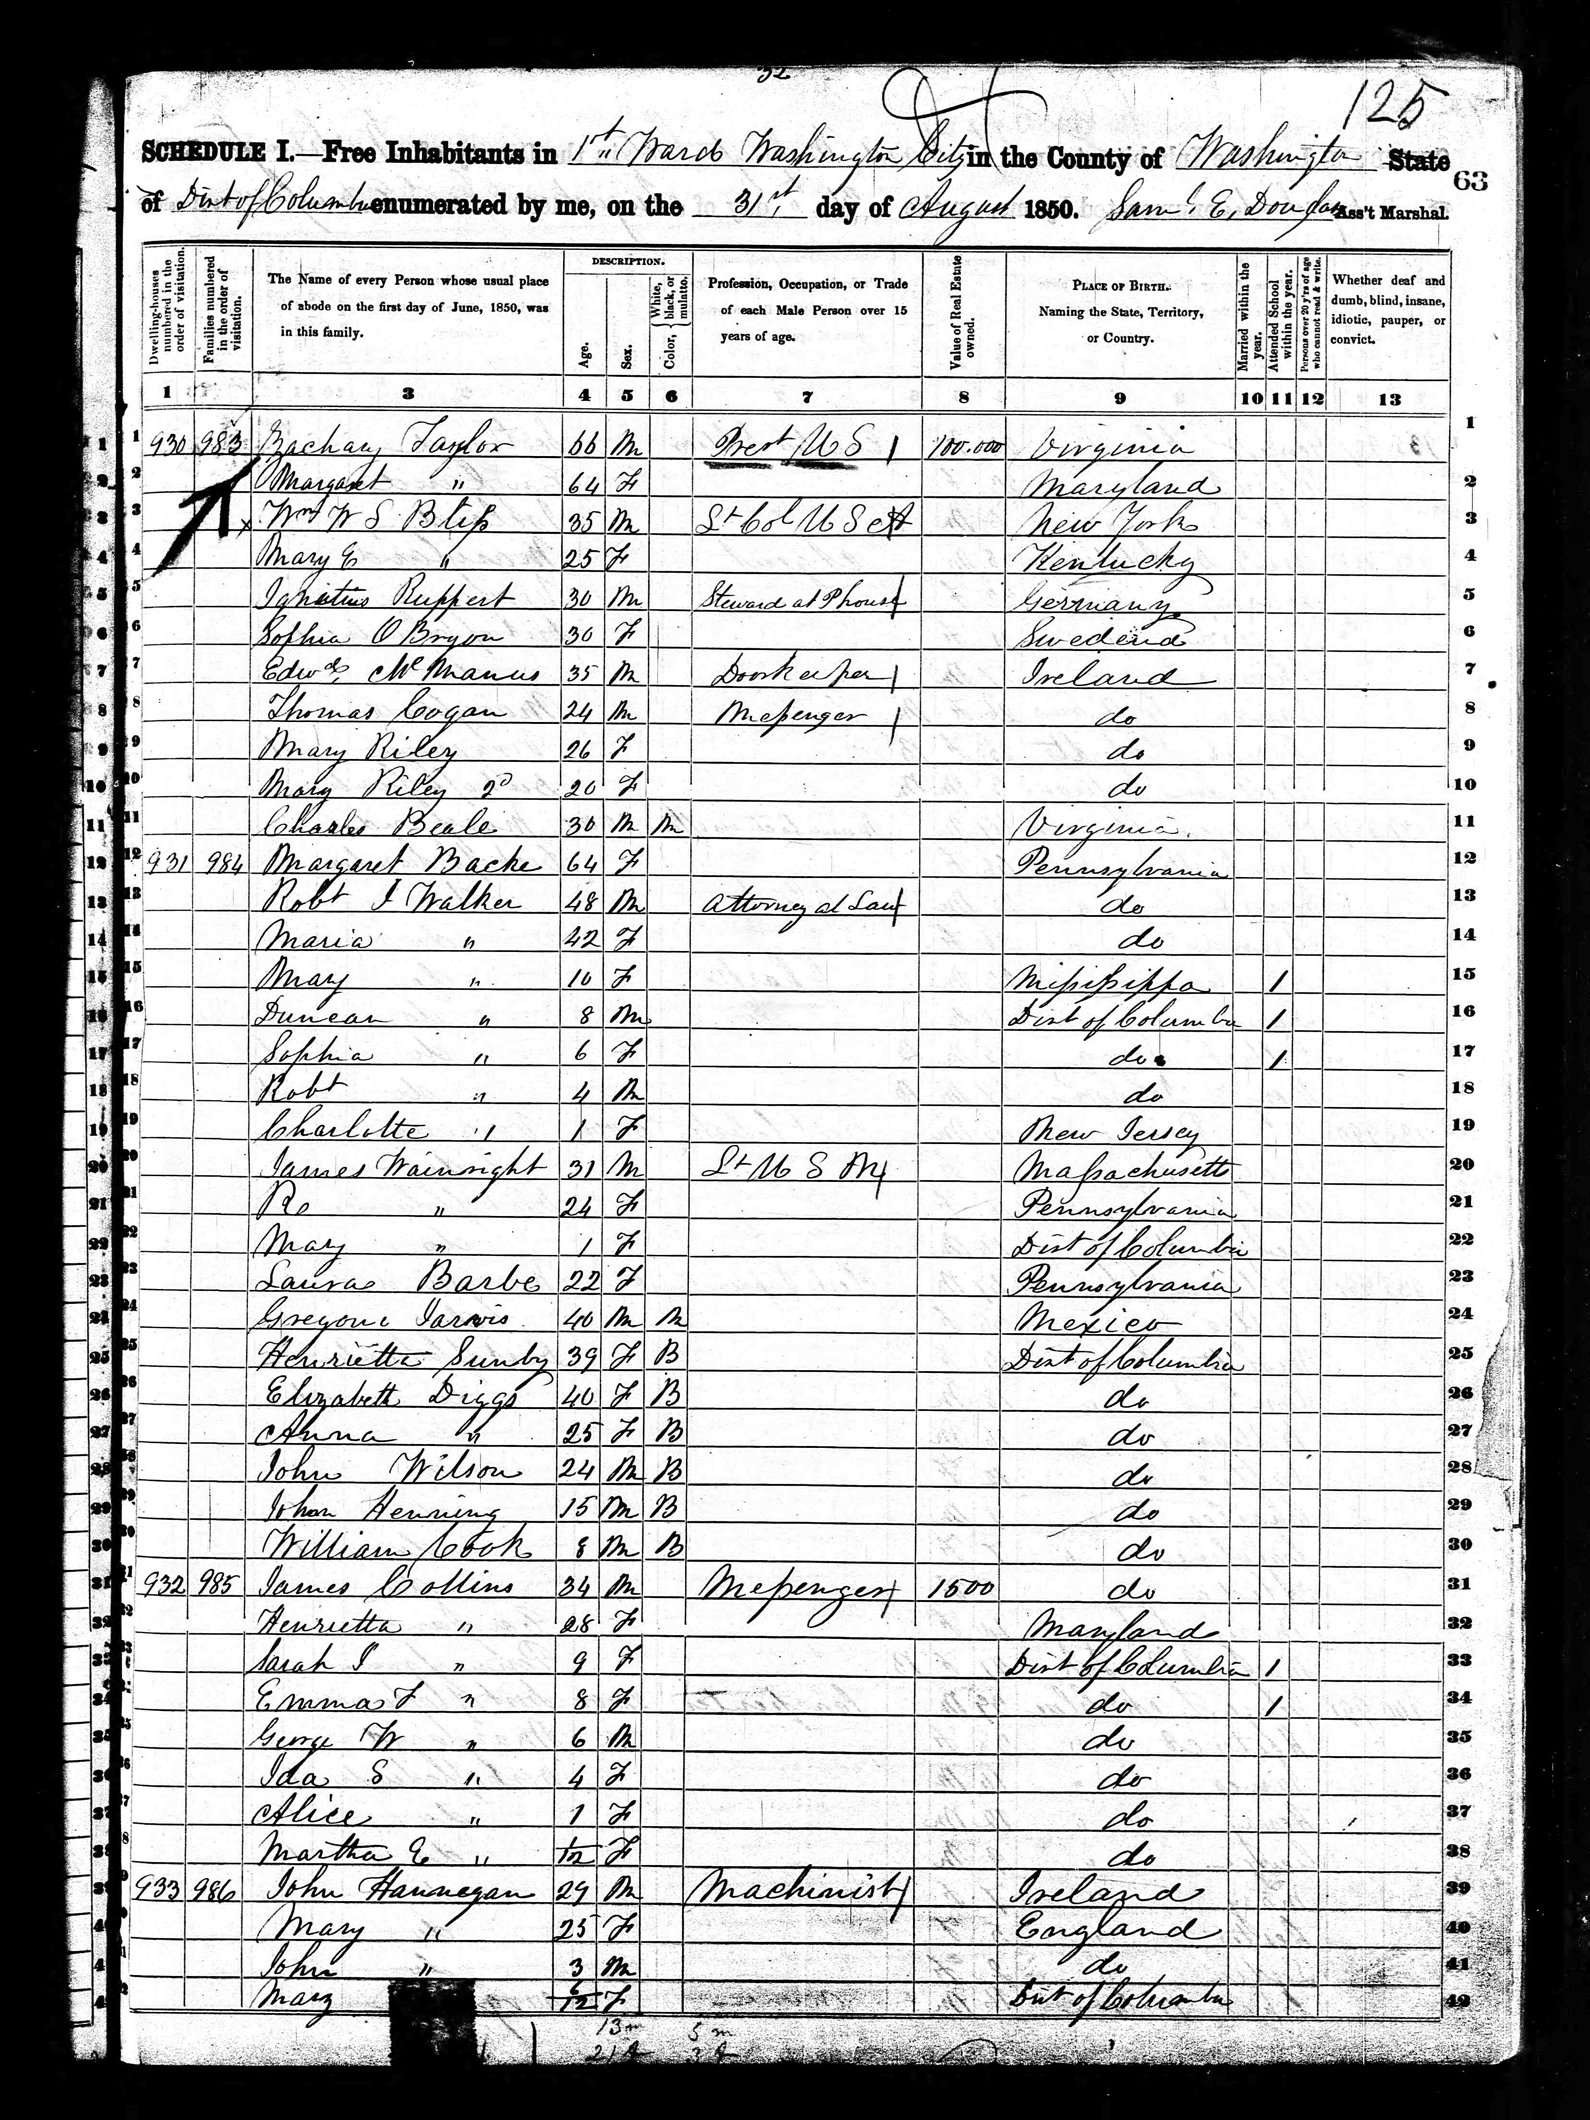 32
125
SCHEDULE I.—Free Inhabitants in 1st Ward Washington City in the County of Washington State
63
of Dist of Columbia enumerated by me, on the 31st day of August 1850. Saml. E. Douglass Ass't Marshal.
Dwelling-houses numbered in the order of visitation.
Families numbered in the order of visitation.
The Name of every Person whose usual place of abode on the first day of June, 1850, was in this family.
DESCRIPTION.
Age.
Sex.
Color, { White, black, or mulatto.
Profession, Occupation, or Trade of each Male Person over 15 years of age.
Value of Real Estate owned.
PLACE OF BIRTH. Naming the State, Territory, or Country.
Married within the year.
Attended School within the year.
Persons over 20 y'rs of age who cannot read & write.
Whether deaf and dumb, blind, insane, idiotic, pauper, or convict.
1 2 3 4 5 6 7 8 9 10 11 12 13
1 930 983 Zachary Taylor 66 M Prest U S 100.000 Virginia 1
2 Margaret " 64 F Maryland 2
3 x Wm W S Bliss 35 M Lt Col U S A New York 3
4 Mary E " 25 F Kentucky 4
5 Ignatius Ruppert 30 M Steward at P house Germany 5
6 Sophia O Bryon 30 F Swedend 6
7 Edwd. Mc Manus 35 M Doorkeeper Ireland 7
8 Thomas Cogan 24 M Messenger do 8
9 Mary Riley 26 F do 9
10 Mary Riley 2d 20 F do 10
11 Charles Beale 30 M M Virginia. 11
12 931 984 Margaret Backe 64 F Pennsylvania 12
13 Robt J Walker 48 M Attorney at Law do 13
14 Maria " 42 F do 14
15 Mary " 10 F Missisippa 1 15
16 Duncan " 8 M Dist of Columbia 1 16
17 Sophia " 6 F do 1 17
18 Robt " 4 M do 18
19 Charlotte " 1 F New Jersey 19
20 James Wainright 31 M Lt U S M Massachusetts 20
21 Ro " 24 F Pennsylvania 21
22 Mary " 1 F Dist of Columbia 22
23 Laura Barbe 22 F Pennsylvania 23
24 Gregori Jarvis 40 M M Mexico 24
25 Henrietta Sunby 39 F B Dist of Columbia 25
26 Elizabeth Diggs 40 F B do 26
27 Anna " 25 F B do 27
28 John Wilson 24 M B do 28
29 John Henning 15 M B do 29
30 William Cook 8 M B do 30
31 932 985 James Collins 34 M Messenger 1500 do 31
32 Henrietta " 28 F Maryland 32
33 Sarah J " 9 F Dist of Columbia 1 33
34 Emma F " 8 F do 1 34
35 George W " 6 M do 35
36 Ida S " 4 F do 36
37 Alice " 1 F do 37
38 Martha E " 1/12 F do 38
39 933 986 John Hannegan 29 M Machinist Ireland 39
40 Mary " 25 F England 40
41 John " 3 M do 41
Mary 6/12 F Dist of Columbia 42
13 m 5 m
21 f 3 f